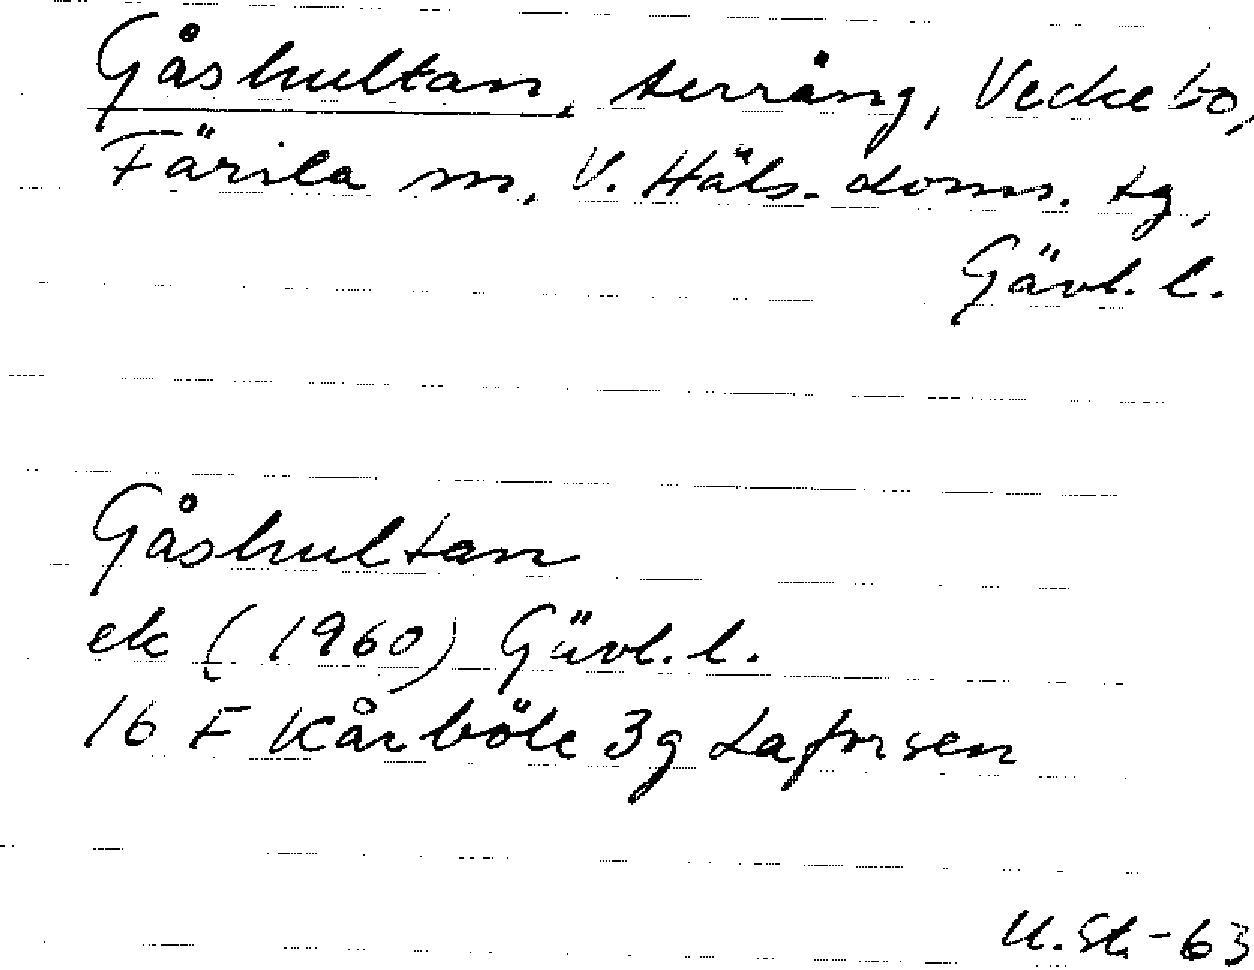 Gåshultan, terräng, Veckebo,
Färila sn, V. Häls. doms. tg,
Gävl. l.
Gåshultan
ek (1960) Gävl. l.
16 F Kårböle 3g Laforsen
U. St. -63